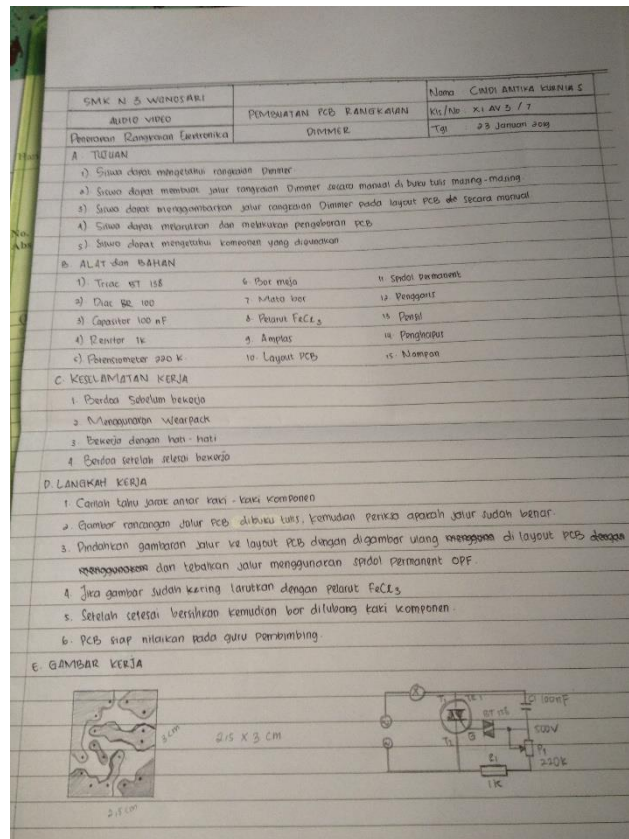 SMK N 3 WONOSARI
AUDIO VIDEO
Penerapan Rangkaian Elektronika
PEMBUATAN PCB RANGKAIAN
DIMMER
Nama : CINDI ANTIKA KURNIA S
Kls/No : XI AV 3 / 7
Tgl : 23 Januari 2019
A. TUJUAN
1) Siswa dapat mengetahui rangkaian Dimmer
2) Siswa dapat membuat jalur rangkaian Dimmer secara manual di buku tulis masing-masing.
3) Siswa dapat menggambarkan jalur rangkaian Dimmer pada layout PCB secara manual
4) Siswa dapat melarutkan dan melakukan pengeboran PCB
5) Siswa dapat mengetahui komponen yang digunakan
B. ALAT dan BAHAN
1). Triac BT 138
2). Diac BR 100
3) Capasitor 100 nF
4) Resitor 1k
5) Potensiometer 220 K
6. Bor meja
7. Mata bor
8. Pelarut FeCl3
9. Amplas
10. Layout PCB
11. Spidol Permanent
12. Penggaris
13. Pensil
14. Penghapus
15. Nampan
C. KESELAMATAN KERJA
1. Berdoa Sebelum bekerja
2. Menggunakan Wearpack
3. Bekerja dengan hati-hati
4. Berdoa setelah selesai bekerja
D. LANGKAH KERJA
1. Carilah tahu jarak antar kaki-kaki komponen
2. Gambar rancangan Jalur PCB dibuku tulis, kemudian periksa apakah jalur sudah benar.
3. Pindahkan gambaran jalur ke layout PCB dengan digambar ulang di layout PCB
dan tebalkan jalur menggunakan spidol permanent OPF.
4. Jika gambar sudah kering larutkan dengan pelarut FeCl3
5. Setelah selesai bersihkan kemudian bor dilubang kaki komponen.
6. PCB siap nilaikan pada guru pembimbing.
E. GAMBAR KERJA
3 cm
2,5 cm
2,5 X 3 CM
T1
T2
100nF
500V
P1
220k
R1
1k